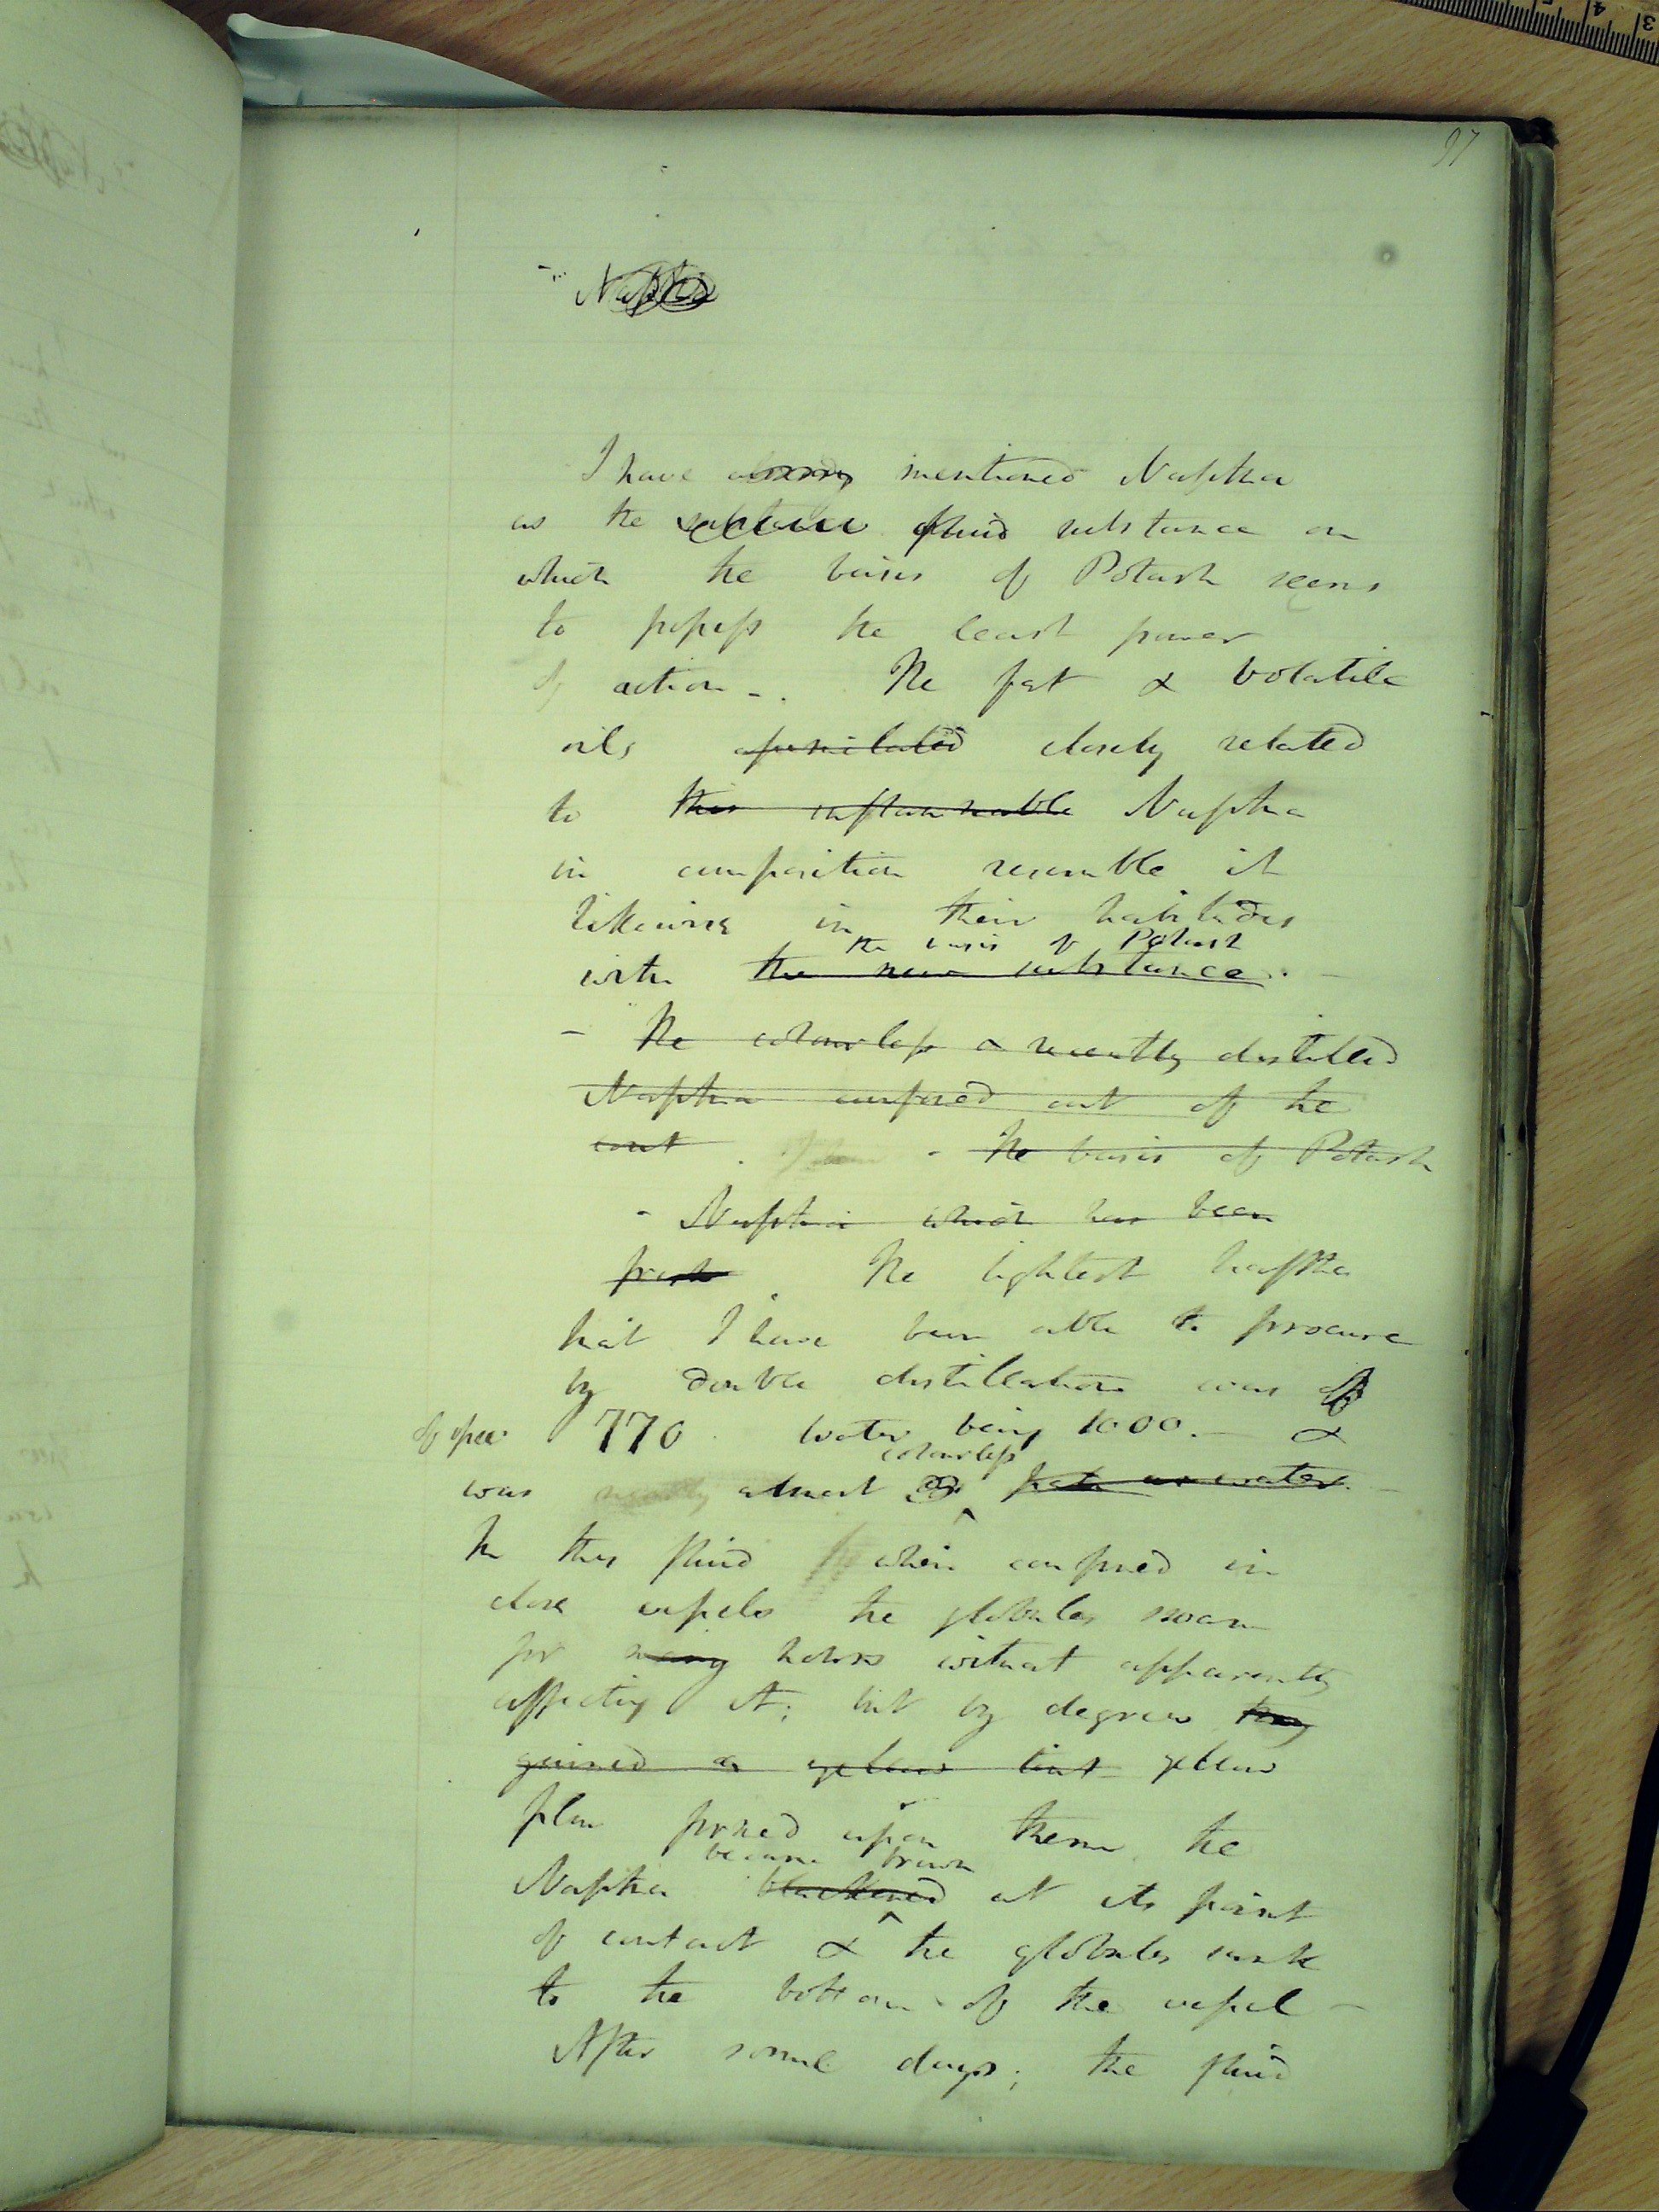 97
I have already mentioned Naptha
as the fluid substance on
which the basis of Potash seems
to possess the least power
of action -. The fat & volatile
oils assimilated closely related
to this inflammable Naptha
in composition resemble it
likewise in their habitudes
the basis of Potash
with the new substance. -
- The colourless & recently distilled
Naptha confined out of the
cont. - The basis of Potash
- Naptha which has been
fresh. The lightest naptha
that I have been able to procure
by double distillation was of
of spec 770 water being 1000. - &
colourless
was nearly almost as water. -
In this fluid when confined in
close vessels the globules swam
for many hours without apparently
affecting it; but by degrees they
gained a yellow tint yellow
film formed upon them the
became brown
Naptha blackened at its point
of contact & the globules sunk
to the bottom of the vessel -
After some days; the fluid